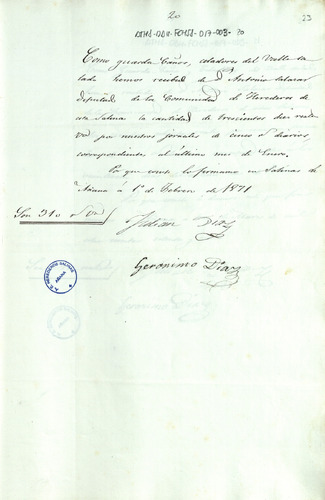 20
23
ATHS-DDH-FCHSA-017-003-20
Como guarda Caños, celadores del Valle sa
lado hemos recibido de Dn Antonio Salazar
diputado de la Comunidad de Herederos de
esta Salina la cantidad de trescientos diez reales
von por nuestros jornales de cinco rs diarios
correspondiente al último mes de Enero.
Y para que conste lo firmamos en Salinas de
Añana á 1º de Febrero de 1871
Son 310 rs von
Julian Diaz
Geronimo Diaz
HEREDEROS SALINAS
AÑANA